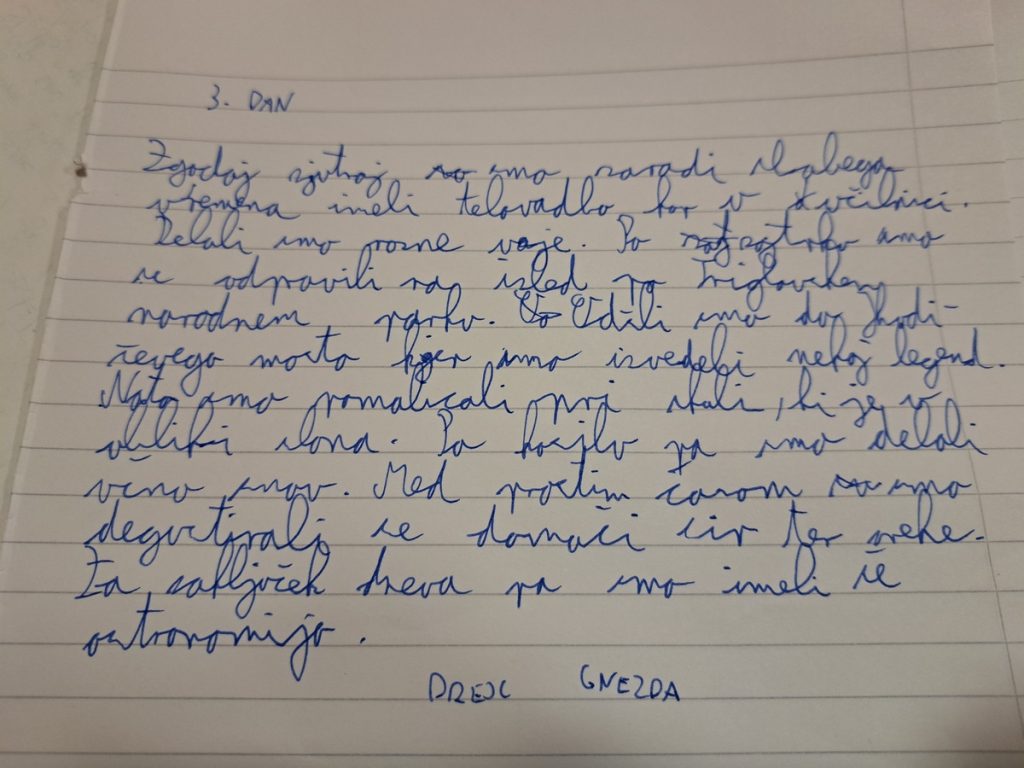 3. DAN
Zgodaj zjutraj smo zaradi slabega
vremena imeli telovadbo kar v učilnici.
Delali smo razne vaje. Po zajtrku smo
se odpravili na izlet po Triglavskem
narodnem parku. Odšli smo do Hudi-
čevega mosta kjer smo izvedeli nekaj legend.
Nato smo pomalicali pri skali, ki je v
obliki slona. Po kosilu pa smo delali
učno snov. Med prostim časom smo
degustirali še domači sir ter mehe.
Za zaključek dneva pa smo imeli še
astronomijo.
DREJC GNEZDA